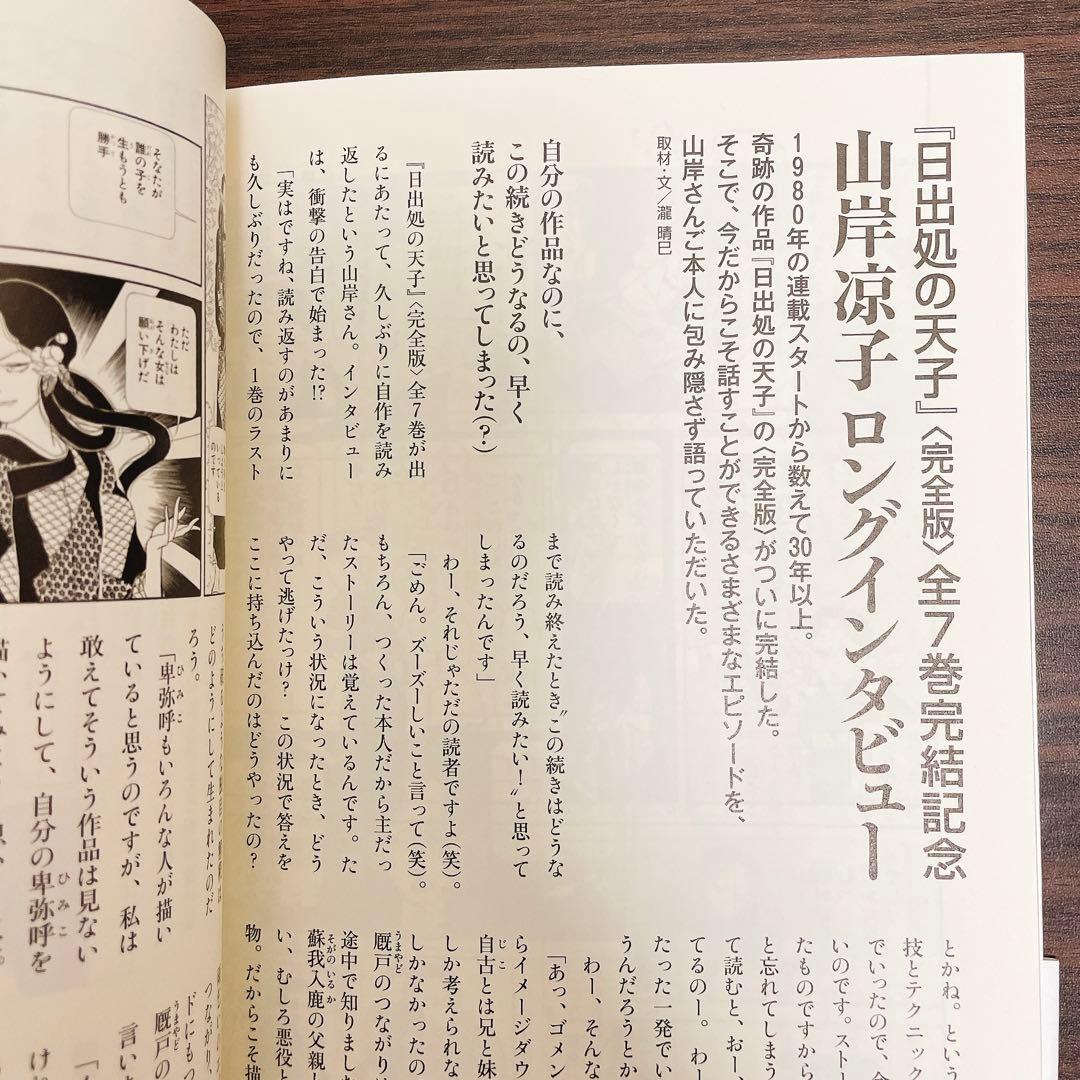 『日出処の天子』〈完全版〉全7巻完結記念
山岸凉子 ロングインタビュー
1980年の連載スタートから数えて30年以上。
奇跡の作品『日出処の天子』の〈完全版〉がついに完結した。
そこで、今だからこそ話すことができるさまざまなエピソードを、
山岸さんご本人に包み隠さず語っていただいた。
取材・文／瀧 晴巳
自分の作品なのに、
この続きどうなるの、早く
読みたいと思ってしまった(?)
『日出処の天子』〈完全版〉全7巻が出
るにあたって、久しぶりに自作を読み
返したという山岸さん。インタビュー
は、衝撃の告白で始まった!?
「実はですね、読み返すのがあまりに
も久しぶりだったので、1巻のラスト
まで読み終えたとき〝この続きはどうな
るのだろう、早く読みたい！〟と思って
しまったんです」
わー、それじゃただの読者ですよ(笑)。
「ごめん。ズーズーしいこと言って(笑)。
もちろん、つくった本人だから主だっ
たストーリーは覚えているんです。た
だ、こういう状況になったとき、どう
やって逃げたっけ？ この状況で答えを
ここに持ち込んだのはどうやったの？
とかね。という
技とテクニック
でいったので、
いのです。ストー
たものですから
と忘れてしまう
て読むと、おー、
てるのー。わー
たった一発でい
うんだろうとか
わー、そんな
「あっ、ゴメン
らイメージダウ
自古とは兄と妹
しか考えられな
しかなかったの
厩戸のつながり
途中で知りまし
蘇我入鹿の父親
い、むしろ悪役と
物。だからこそ描
そなたが
誰の子を
生もうとも
勝手
ただ
わたしは
そんな女は
願い下げだ
どのようにして生まれたのだ
ろう。
「卑弥呼もいろんな人が描い
ていると思うのですが、私は
敢えてそういう作品は見ない
ようにして、自分の卑弥呼を
つながり、
ドにもつ
厩戸の
言い